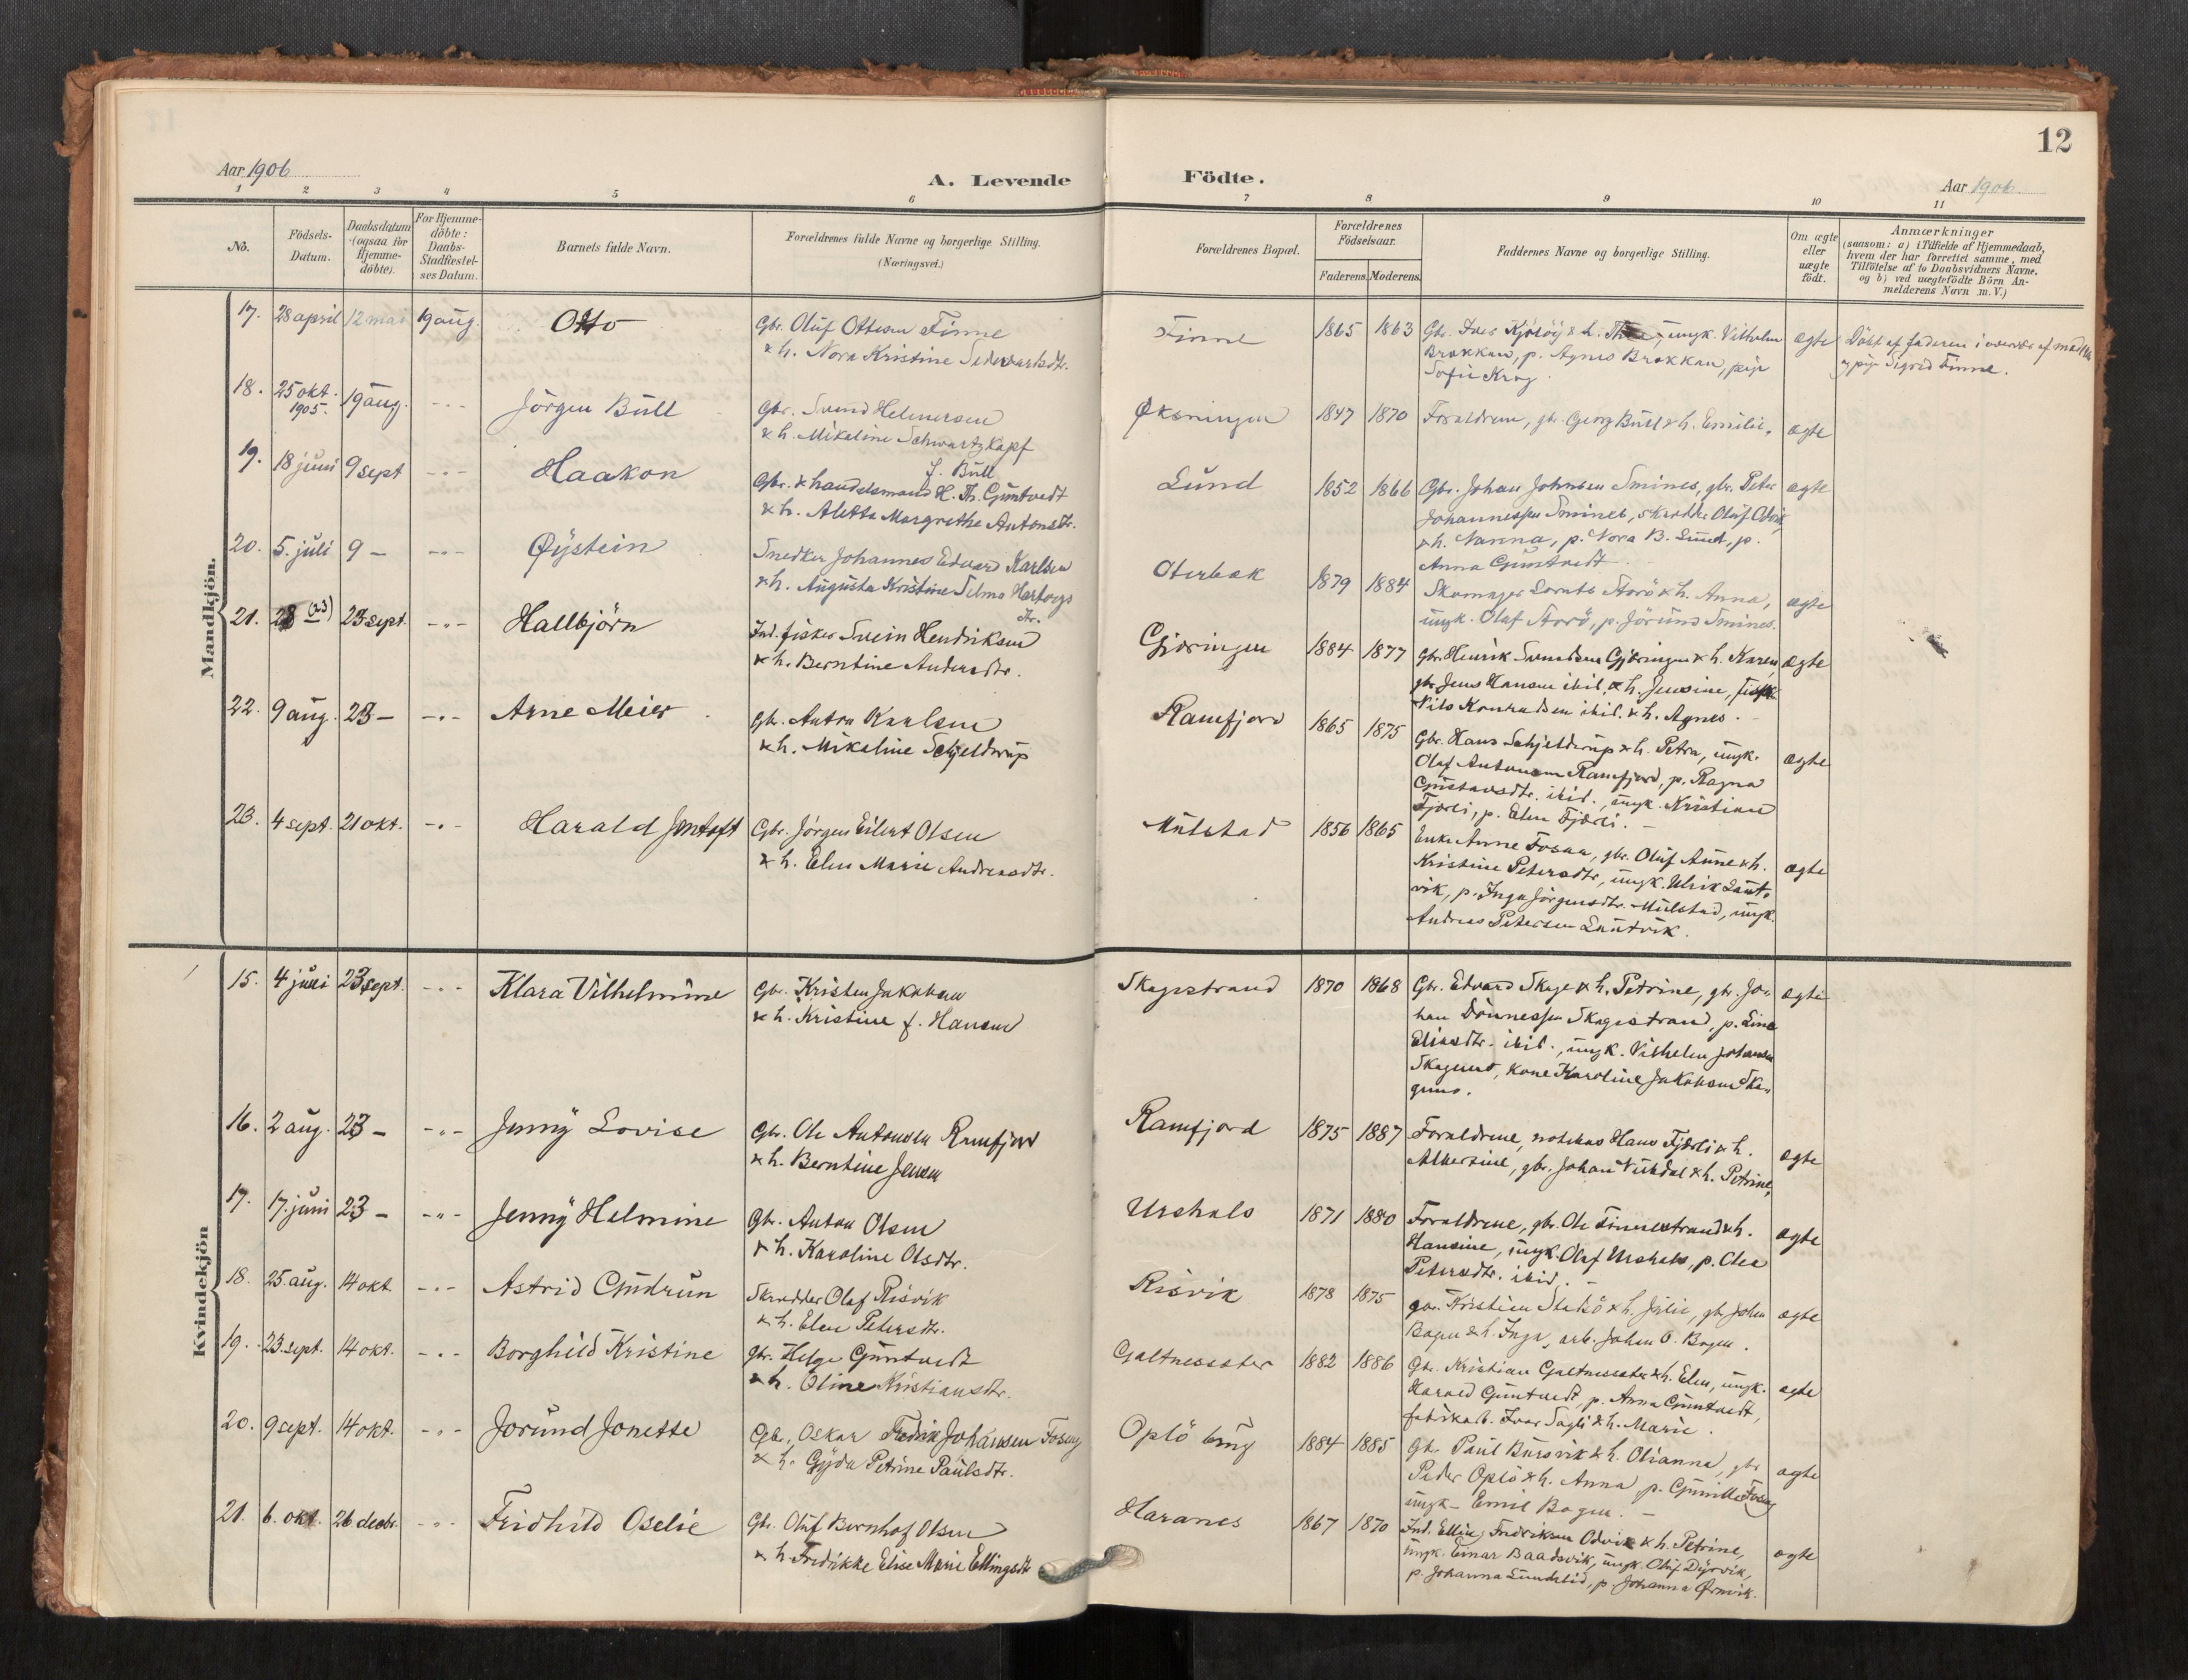 12
Aar 1906
A. Levende
Födte.
Aar 1906
1 2 3 4 5 6 7 8 9 10 11
No.
Födsels-
Datum.
Daabsdatum
(ogsaa for
Hjemme-
döbte).
For Hjemme-
döbte:
Daabs-
Stadfæstel-
ses Datum.
Barnets fulde Navn.
Forældrenes fulde Navne og borgerlige Stilling.
(Næringsvei.)
Forældrenes Bopæl.
Forældrenes
Födselsaar.
Faderens. Moderens.
Faddernes Navne og borgerlige Stilling.
Om ægte
eller
uægte
födt.
Anmærkninger
(saasom: a) i Tilfælde af Hjemmedaab,
hvem der har forrettet samme, med
Tilföielse af to Daabsvidners Navne,
og b) ved uægtefödte Börn An-
melderens Navn m. V.)
Mandkjön.
17. 28 april 12 mai 19 aug. Otto
Gbr. Oluf Ottesen Finne
& h. Nora Kristine
Finne 1865 1863
Gbr. Iver & h. ungk. Vilhelm
Brakkan, p. Agnes Brakkan, pige
Sofie Krog
ægte
Döbt af faderen i overvær af
og pige Sigrid Finne.
18. 25 okt. 1905. 19 aug. -"- Jörgen Bull
Gbr. Svend Helmersen
& h. Mikaline Schwartzkopf
f. Bull
Øksningen 1847 1870
Forældrene, gbr. Georg Bull & h. Emilie.
ægte
19. 18 juni 9 sept -"- Haakon
Gbr. & handelsmand H. Th. Guntvedt
& h. Aletta Margrethe Antonsdtr.
Lund 1852 1866
Gbr. Johan Johnsen Smines, gbr. Peter
Johannessen Smines, skrædder Oluf
& h. Nanna, p. Nora B. Lund, p.
Anna Guntvedt.
ægte
20. 5. juli 9 - -"- Øystein
Snedker Johannes Edvard Karlsen
& h. Augusta Kristine Selma Hartvigs
dtr.
Oterbek 1879 1884
Skomager Lornts Storö & h. Anna,
ungk. Olaf Storö, p. Jörund Smines.
ægte
21. 28 (23) 23 sept. -"- Hallbjörn
Ind. fisker Svein Hendriksen
& h. Berntine Andersdtr.
Gjæringen 1884 1877
Gbr. Henrik Svendsen Gjæringen & h. Karen,
gbr. Jens Hansen ibid. & h. Jensine, fisker
Nils Konradsen ibid. & h. Agnes.
ægte
22. 9 aug. 23 - -"- Arne Meier
gbr. Anton Karlsen
& h. Mikaline Schjeldrup
Ramfjord 1865 1875
Gbr. Hans Schjeldrup & h. Petra, ungk.
Olaf Antonsen Ramfjord, p. Ragna
Gustavsdtr. ibid., ungk. Kristian
Fjærli, p. Elen Fjærli.
ægte
23. 4 sept. 21 okt. -"- Harald Jentoft
Gbr. Jörgen Eilert Olsen
& h. Elen Marie Andreasdtr.
Mulstad 1856 1865
Enke Anne Fosaa, gbr. Oluf Aune & h.
Kristine Petersdtr, ungk. Ulrik Laut-
vik, p. Inga Jörgensdtr. Mulstad, ungk.
Andreas Petersen Lautvik.
ægte
Kvindekjön
15. 4 juli 23 sept. -"- Klara Vilhelmine
Gbr. Kristen Jakobsen
& h. Kristine f. Hansen
Skagestrand 1870 1868
Gbr. Edvard Skage & h. Petrine, gbr. Jo-
han Dönnessen Skagestrand, p. Lina
Eliasdtr. ibid., ungk. Vilhelm Johansen
Skagenes, kone Karoline Jakobsen Ska-
genes.
ægte
16. 2 aug. 23 - -"- Jenny Lovise
Gbr. Ole Antonsen Ramfjord
& h. Berntine Jensen
Ramfjord 1875 1887
Forældrene, notebas Hans Fjærli & h.
Albertine, gbr. Johan & h. Petrine,
ægte
17. 17. juni 23 - -"- Jenny Helmine
Gbr. Anton Olsen
& h. Karoline Olsdtr.
Urshals 1871 1880
Forældrene, gbr. Ole Finnestrand & h.
Hansine, ungk. Olaf Urshals, p. Olea
Petersdtr. ibid.
ægte
18. 25. aug. 14 okt. -"- Astrid Gudrun
Skrædder Olaf Risvik
& h. Elen Petersdtr.
Risvik 1878 1875
gbr. Kristian & h. Julie, gbr. Johan
Bogen & h. Inga, arb. Johan O. Bogen.
ægte
19. 23. sept. 14 okt. -"- Borghild Kristine
gbr. Helge Guntvedt
& h. Oline Kristiansdtr.
Galtnessæter 1882 1886
Gbr. Kristian Galtnessæter & h. Elen, ungk.
Harald Guntvedt, p. Anna Guntvedt,
Ivar & h. Marie.
ægte
20. 9 sept. 14 okt. -"- Jorund Jonette
Gbr. Oskar Fredrik Johansen Fosmo
& h. Gyda Petrine Paulsdtr.
Oplö brug 1884 1885
Gbr. Paul Bursvik & h. Olianna, gbr.
Peder Oplö & h. Anna, p. Gunille
ungk. Emil Bogen.
ægte
21. 6. okt. 26 decbr. -"- Fridhild Oselie
Gbr. Oluf Bernhof Olsen
& h. Fredrikke Elise Marie Ellingsdtr.
Haranes 1867 1870
Ind. Elling Fredriksen Odvik & h. Petrine,
ungk. Einar Baadsvik, ungk. Oluf Dyrvik,
p. Johanna Lundslid, p. Johanna Ørnvik.
ægte